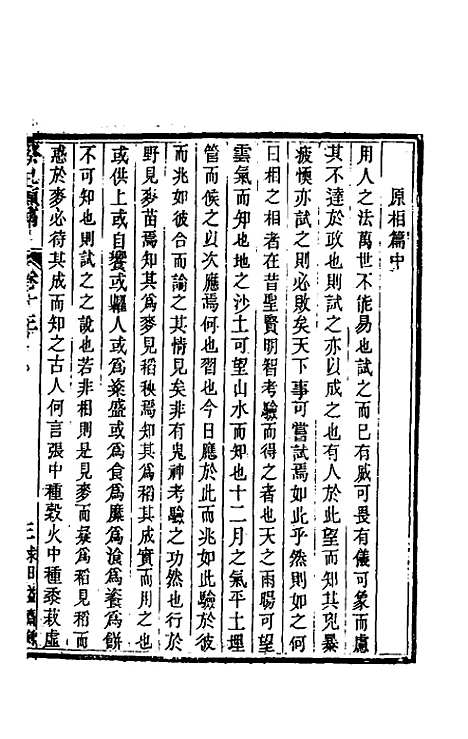 原相篇中
用人之法萬世不能易也試之而已有威可畏有儀可象而慮
其不達於政也則試之亦以成之也有人於此望而知其兇暴
疲愞亦試之則必敗矣天下事可嘗試焉如此乎然則如之何
曰相之相者在昔聖賢明智考驗而得之者也天之雨暘可望
雲氣而知也地之沙土可望山水而知也十二月之氣平土埋
管而候之以次應焉何也習也今日應於此而兆如此驗於彼
而兆如彼合而論之其情見矣非有鬼神考驗之功然也於此
野見麥苗焉知其爲麥見稻秧焉知其爲稻其成實而用之也
或供上或自饗或糶人或爲粢盛或爲食爲糜爲飡爲餈爲餅
不可知也則試之之說也若非相則是見麥而疑爲稻見稻而
惑於麥必待其成而知之古人何言張中種穀火中種黍菽虛
卷十三